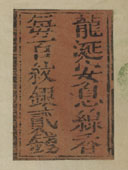 龍涎安息線香
每百紋銀貳錢